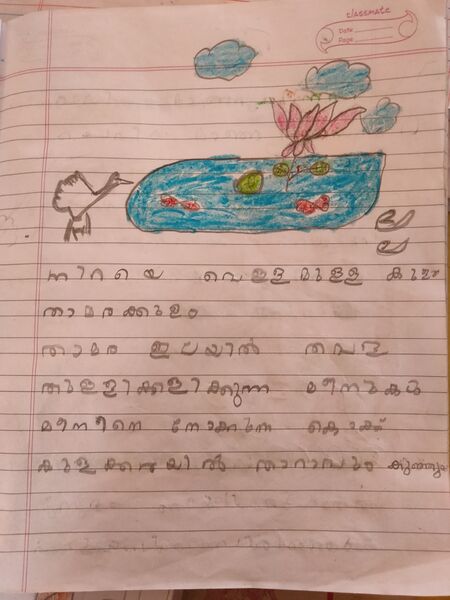 classmate
Date
Page
ല
നിറയെ വെള്ളമുള്ള കുളം
താമരക്കുളം
താമര ഇലയിൽ തവള
തുള്ളിക്കളിക്കുന്ന മീനുകൾ
മീനിനെ നോക്കുന്ന കൊക്ക്
കുളക്കരയിൽ താറാവും കുഞ്ഞും